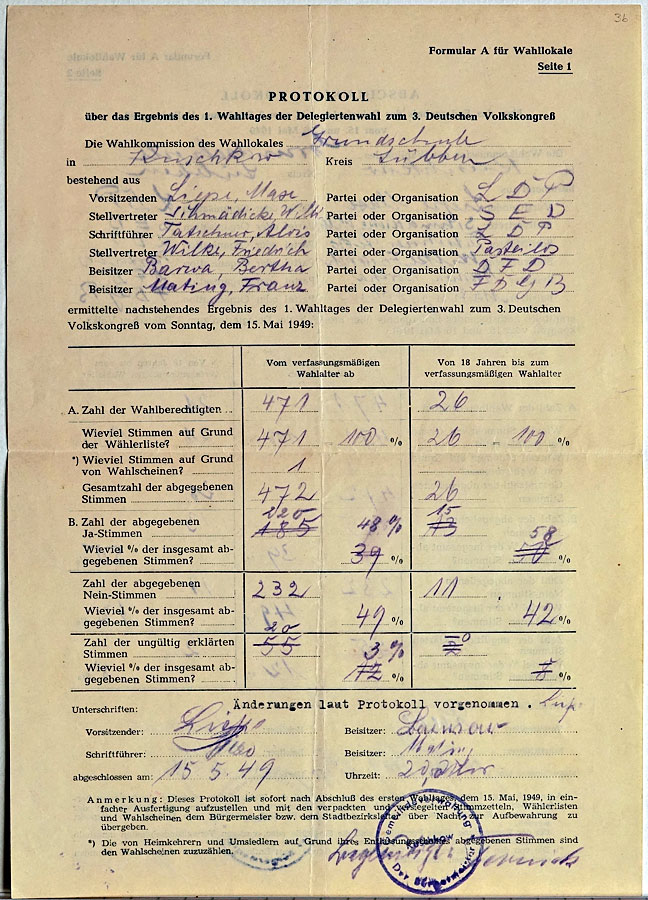 36
Formular A für Wahllokale
Seite 1
PROTOKOLL
über das Ergebnis des 1. Wahltages der Delegiertenwahl zum 3. Deutschen Volkskongreß
Die Wahlkommission des Wahllokales Grundschule
in Kuschkow Kreis Lübben
bestehend aus
Vorsitzenden Liepe, Max Partei oder Organisation L D P
Stellvertreter Schmädicke, Willi Partei oder Organisation S E D
Schriftführer Tatschner, Alois Partei oder Organisation L D P
Stellvertreter Wilke, Friedrich Partei oder Organisation Parteilos
Beisitzer Barwa, Bertha Partei oder Organisation D F D
Beisitzer Mating, Franz Partei oder Organisation F D G B
ermittelte nachstehendes Ergebnis des 1. Wahltages der Delegiertenwahl zum 3. Deutschen
Volkskongreß vom Sonntag, dem 15. Mai 1949:
Vom verfassungsmäßigen Wahlalter ab
Von 18 Jahren bis zum verfassungsmäßigen Wahlalter
A. Zahl der Wahlberechtigten 471 26
Wieviel Stimmen auf Grund
der Wählerliste? 471 100 % 26 100 %
*) Wieviel Stimmen auf Grund
von Wahlscheinen? 1
Gesamtzahl der abgegebenen
Stimmen 472 26
220 15
B. Zahl der abgegebenen
Ja-Stimmen 185 48 % 13 58
Wieviel % der insgesamt ab-
gegebenen Stimmen? 39 % 50 %
Zahl der abgegebenen
Nein-Stimmen 232 11
Wieviel % der insgesamt ab-
gegebenen Stimmen? 49 % 42 %
20
Zahl der ungültig erklärten
Stimmen 55 3 % 2 0
Wieviel % der insgesamt ab-
gegebenen Stimmen? 12 % 8 %
Änderungen laut Protokoll vorgenommen.
Unterschriften:
Vorsitzender: Liepe Beisitzer:
Schriftführer: Beisitzer: Mating
abgeschlossen am: 15.5.49 Uhrzeit: 20,00 Uhr
Anmerkung: Dieses Protokoll ist sofort nach Abschluß des ersten Wahltages, dem 15. Mai 1949, in ein-
facher Ausfertigung aufzustellen und mit den verpackten und versiegelten Stimmzetteln, Wählerlisten
und Wahlscheinen dem Bürgermeister bzw. dem Stadtbezirksleiter über Nacht zur Aufbewahrung zu
übergeben.
*) Die von Heimkehrern und Umsiedlern auf Grund ihres Entlassungsscheines abgegebenen Stimmen sind
den Wahlscheinen zuzuzählen.
Gemeindeverwaltung
Kuschkow
Der Bürgermeister